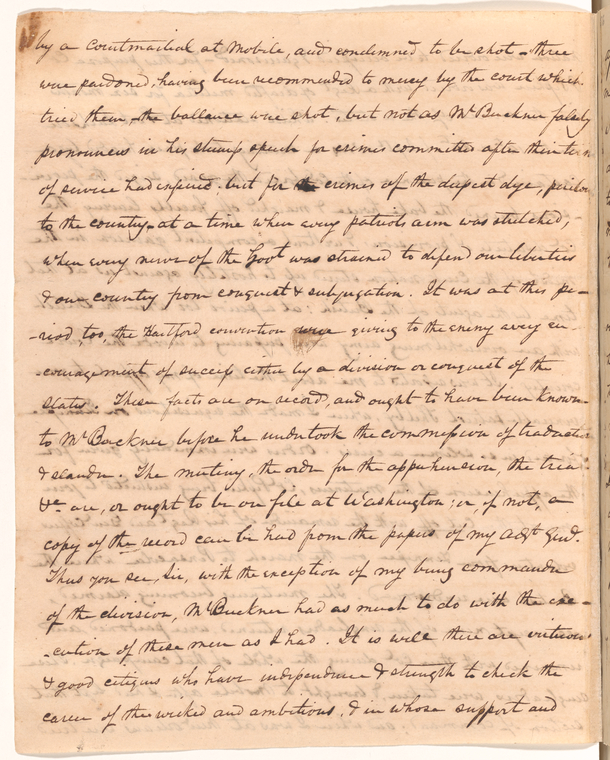 by a Courtmartial at Mobile, and condemned to be shot - three
were pardoned, having been recommended to mercy by the court which
tried them, the ballance were shot, but not as Mr Buckner falsely
pronounces in his stump speech for crimes committed after their term
of service had expired; but for the crimes of the deepest dye, perilous
to the country - at a time when every patriots arm was stretched,
when every nerve of the Govt was strained to defend our liberties
& our country from conquest & subjugation. It was at this pe-
-riod, too, the Hartford convention were giving to the enemy every en-
-couragement of success either by a division or conquest of the
States. These facts are on record, and ought to have been known
to Mr Buckner before he undertook the commission of traduction
& slander. The mutiny, the order for the apprehension, the trial
&c. are, or ought to be on file at Washington; or, if not, a
copy of the record can be had from the papers of my adjt Genl.
Thus you see, Sir, with the exception of my being commander
of the division, Mr Buckner had as much to do with the exe-
-cution of these men as I had. It is well there are virtuous
& good citizens who have independence & strength to check the
career of the wicked and ambitious, & in whose support and